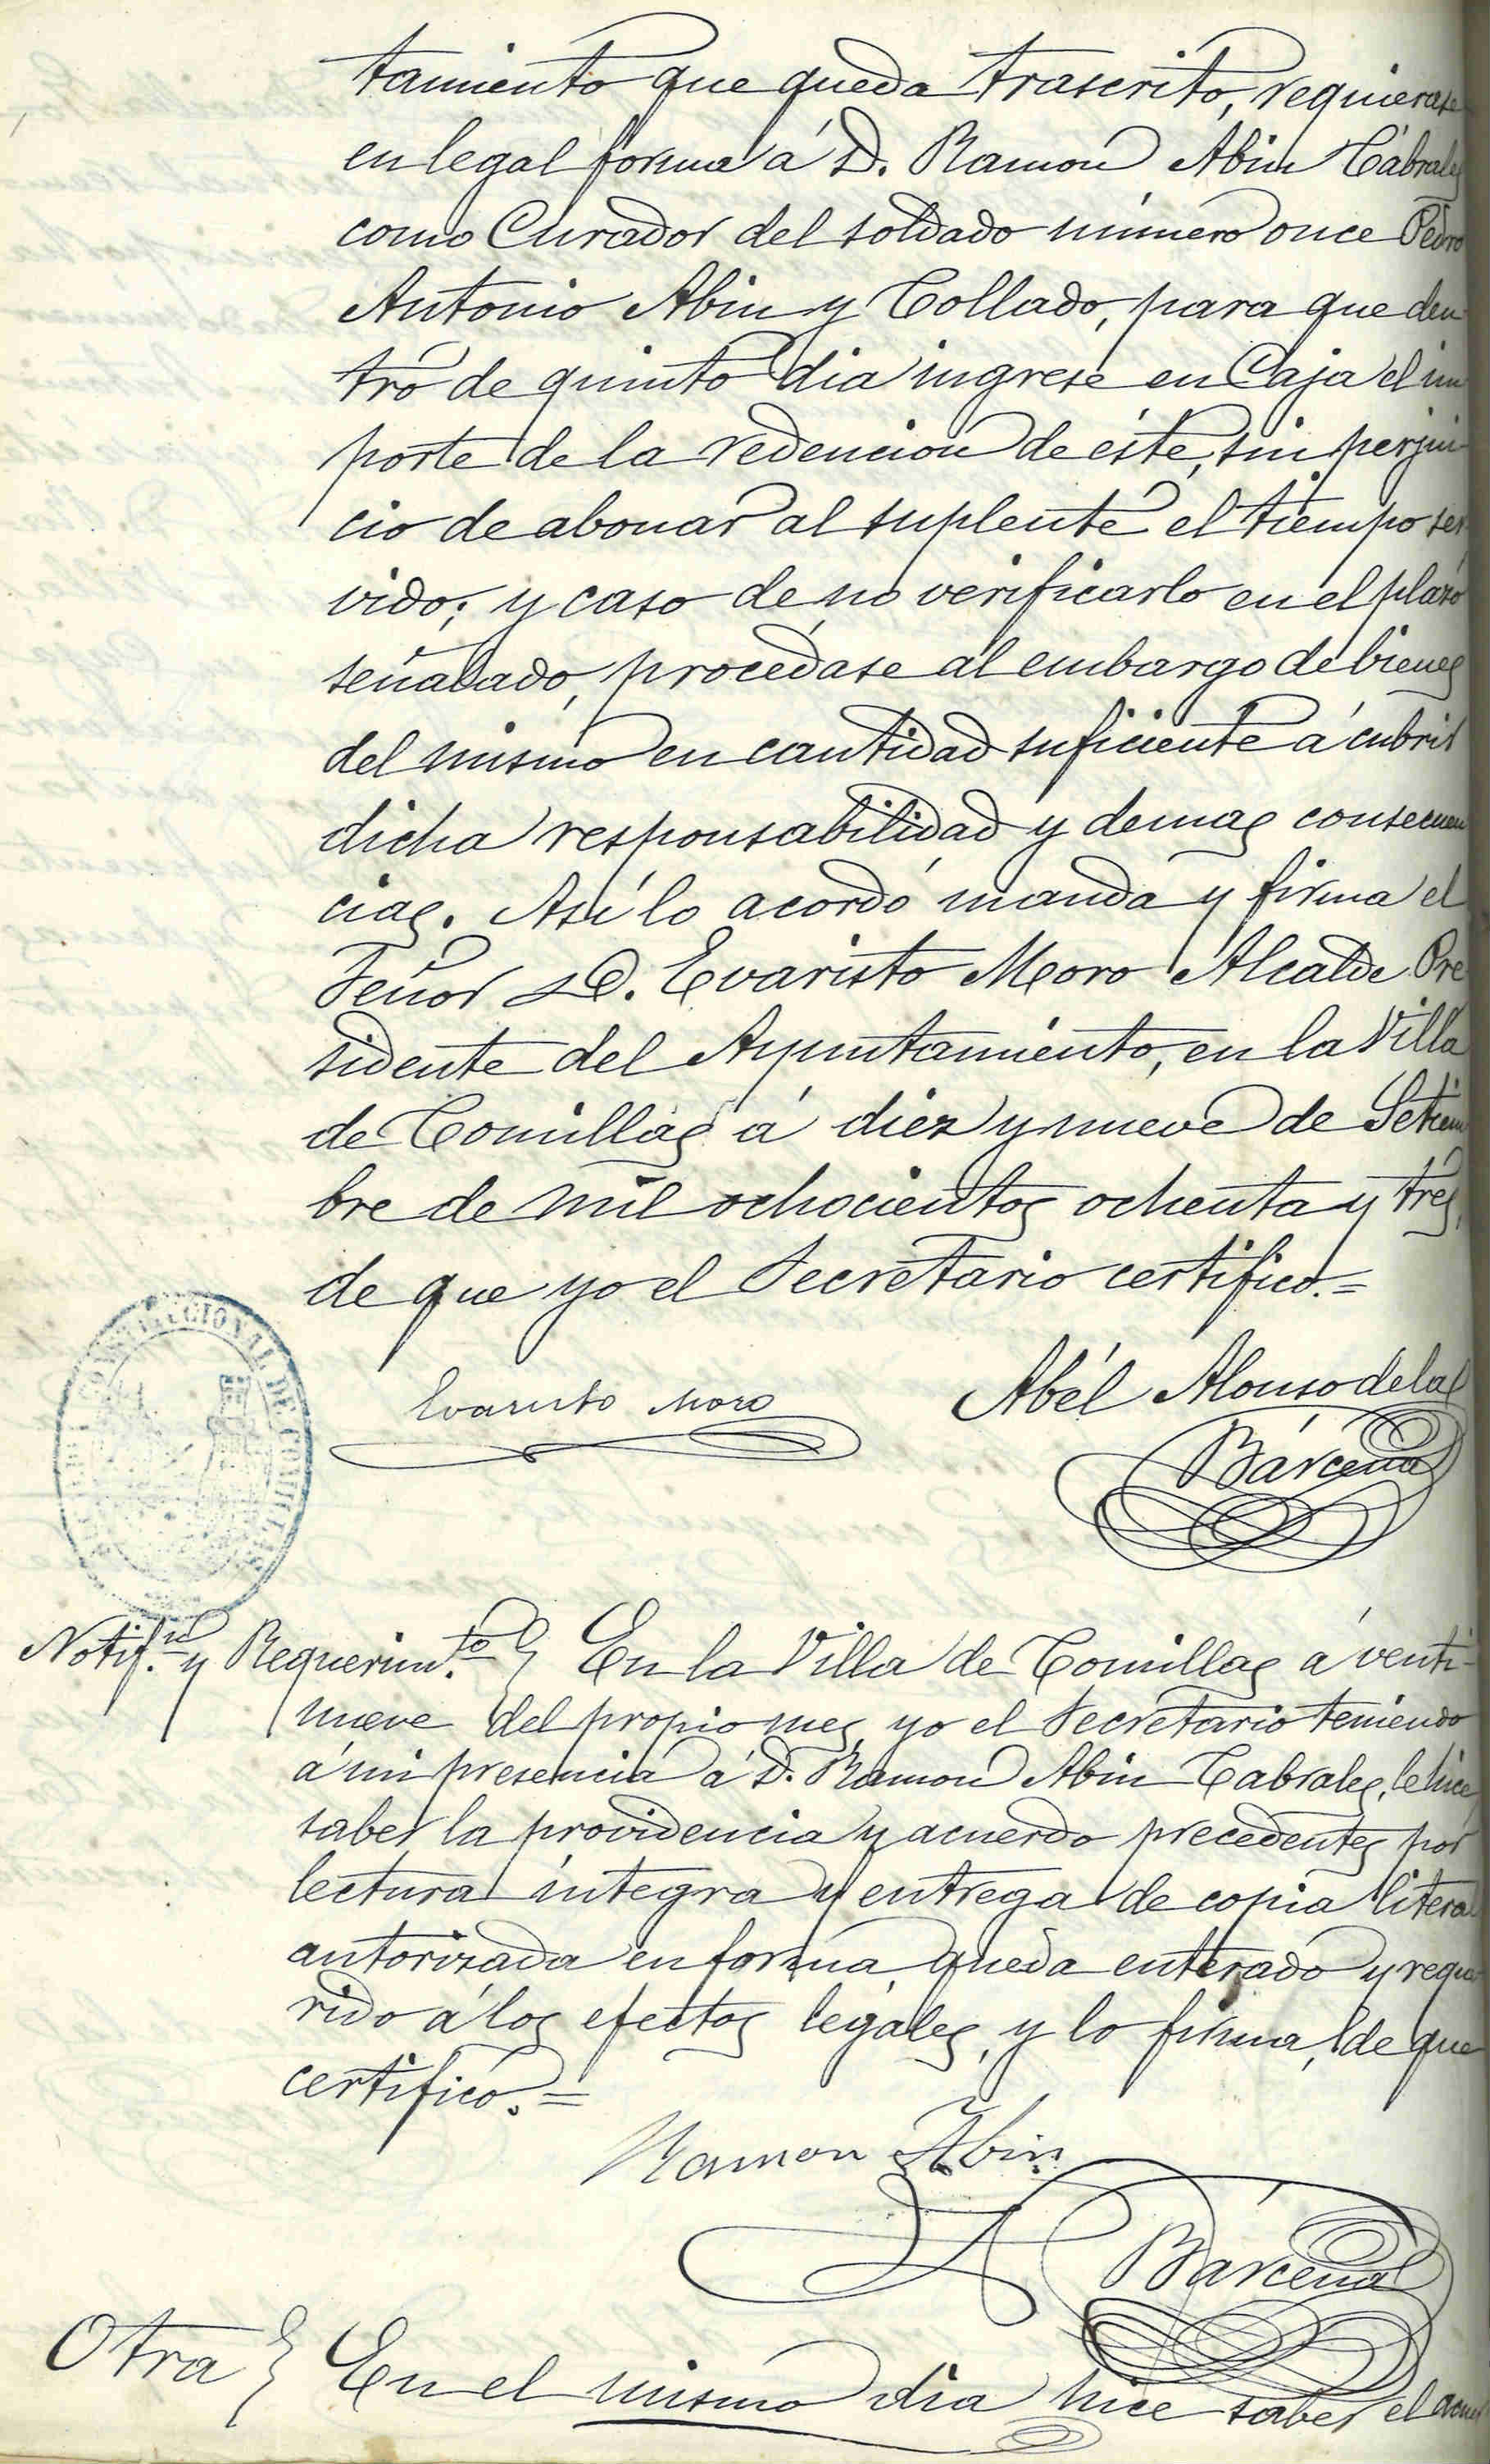 tamiento que queda trascrito, requierase
en legal forma á D. Ramon Abin Cabrales
como Curador del soldado número once Pedro
Antonio Abin y Collado, para que den
tro de quinto dia ingrese en Caja el im
porte de la redencion de éste, sin perjui-
cio de abonar al suplente el tiempo ser
vido; y caso de no verificarlo en el plazo
señalado, procedase al embargo de bienes
del mismo en cantidad suficiente á cubrir
dicha responsabilidad y demas consecuen
cias. Así lo acordó manda y firma el
Señor D. Evaristo Moro Alcalde Pre
sidente del Ayuntamiento, en la Villa
de Comillas á diez y nueve de Setiem
bre de mil ochocientos ochenta y tres,
de que yo el Secretario certifico.=
CONSTITUCIONAL DE COMILLAS
Evaristo Moro
Abél Alonso de la
Bárcena
Notif.on y Requerim.to } En la Villa de Comillas á venti-
nueve del propio mes, yo el Secretario teniendo
á mi presencia á D. Ramon Abin Cabrales, le hice
saber la providencia y acuerdo precedentes por
lectura íntegra y entrega de copia literal
autorizada en forma, queda enterado y reque
rido á los efectos legales, y lo firma, de que
certifico.=
Ramon Abin
Bárcena
Otra } En el mismo dia hice saber el acuer